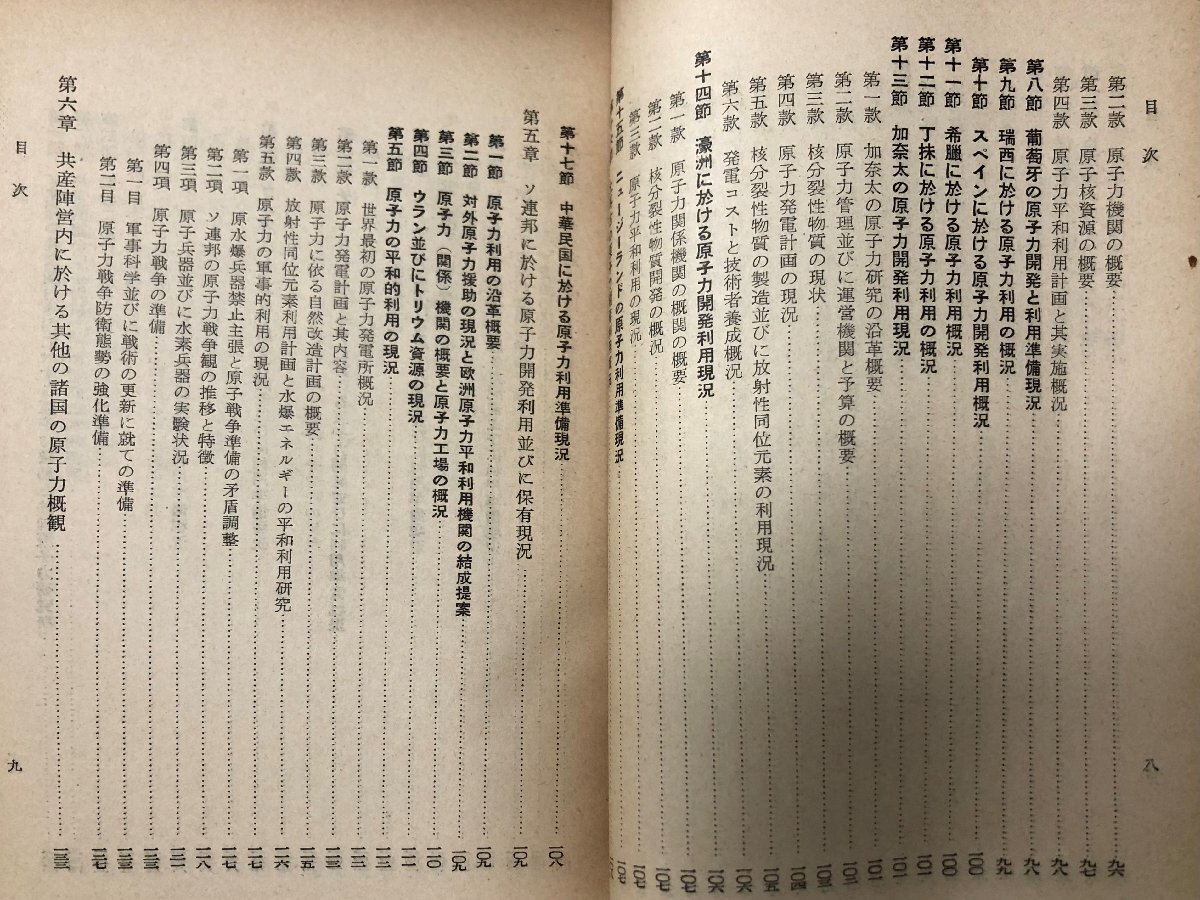 目次
第二款 原子力機関の概要……九六
第三款 原子核資源の概要……九七
第四款 原子力平和利用計画と其実施概況……九八
第八節 葡萄牙の原子力開発と利用準備現況……九八
第九節 瑞西に於ける原子力利用の概況……九九
第十節 スペインに於ける原子力開発利用概況……一〇〇
第十一節 希臘に於ける原子力利用概況……一〇〇
第十二節 丁抹に於ける原子力利用の概況……一〇一
第十三節 加奈太の原子力開発利用現況……一〇一
第一款 加奈太の原子力研究の沿革概要……一〇一
第二款 原子力管理並びに運営機関と予算の概要……一〇二
第三款 核分裂性物質の現状……一〇三
第四款 原子力発電計画の現況……一〇四
第五款 核分裂性物質の製造並びに放射性同位元素の利用現況……一〇五
第六款 発電コストと技術者養成概況……一〇六
第十四節 濠洲に於ける原子力開発利用現況……一〇六
第一款 原子力関係機関の概要……一〇七
第二款 核分裂性物質開発の概況……一〇七
第三款 原子力平和利用の現況……一〇七
第十五節 ニュージーランドの原子力利用準備現況……一〇七
八
第十七節 中華民国に於ける原子力利用準備現況……一〇八
第五章 ソ連邦に於ける原子力開発利用並びに保有現況……一〇九
第一節 原子力利用の沿革概要……一〇九
第二節 対外原子力援助の現況と欧洲原子力平和利用機関の結成提案……一〇九
第三節 原子力(関係)機関の概要と原子力工場の概況……一一〇
第四節 ウラン並びにトリウム資源の現況……一一一
第五節 原子力の平和的利用の現況……一一二
第一款 世界最初の原子力発電所概況……一一二
第二款 原子力発電計画と其内容……一一三
第三款 原子力に依る自然改造計画の概要……一一五
第四款 放射性同位元素利用計画と水爆エネルギーの平和利用研究……一一六
第五款 原子力の軍事的利用の現況……一一七
第一項 原水爆兵器禁止主張と原子戦争準備の矛盾調整……一一七
第二項 ソ連邦の原子力戦争観の推移と特徴……一一八
第三項 原子兵器並びに水素兵器の実験状況……一二一
第四項 原子力戦争の準備……一二三
第一目 軍事科学並びに戦術の更新に就ての準備……一二三
第二目 原子力戦争防衛態勢の強化準備……一二七
第六章 共産陣営内に於ける其他の諸国の原子力概観……一三三
目次
九